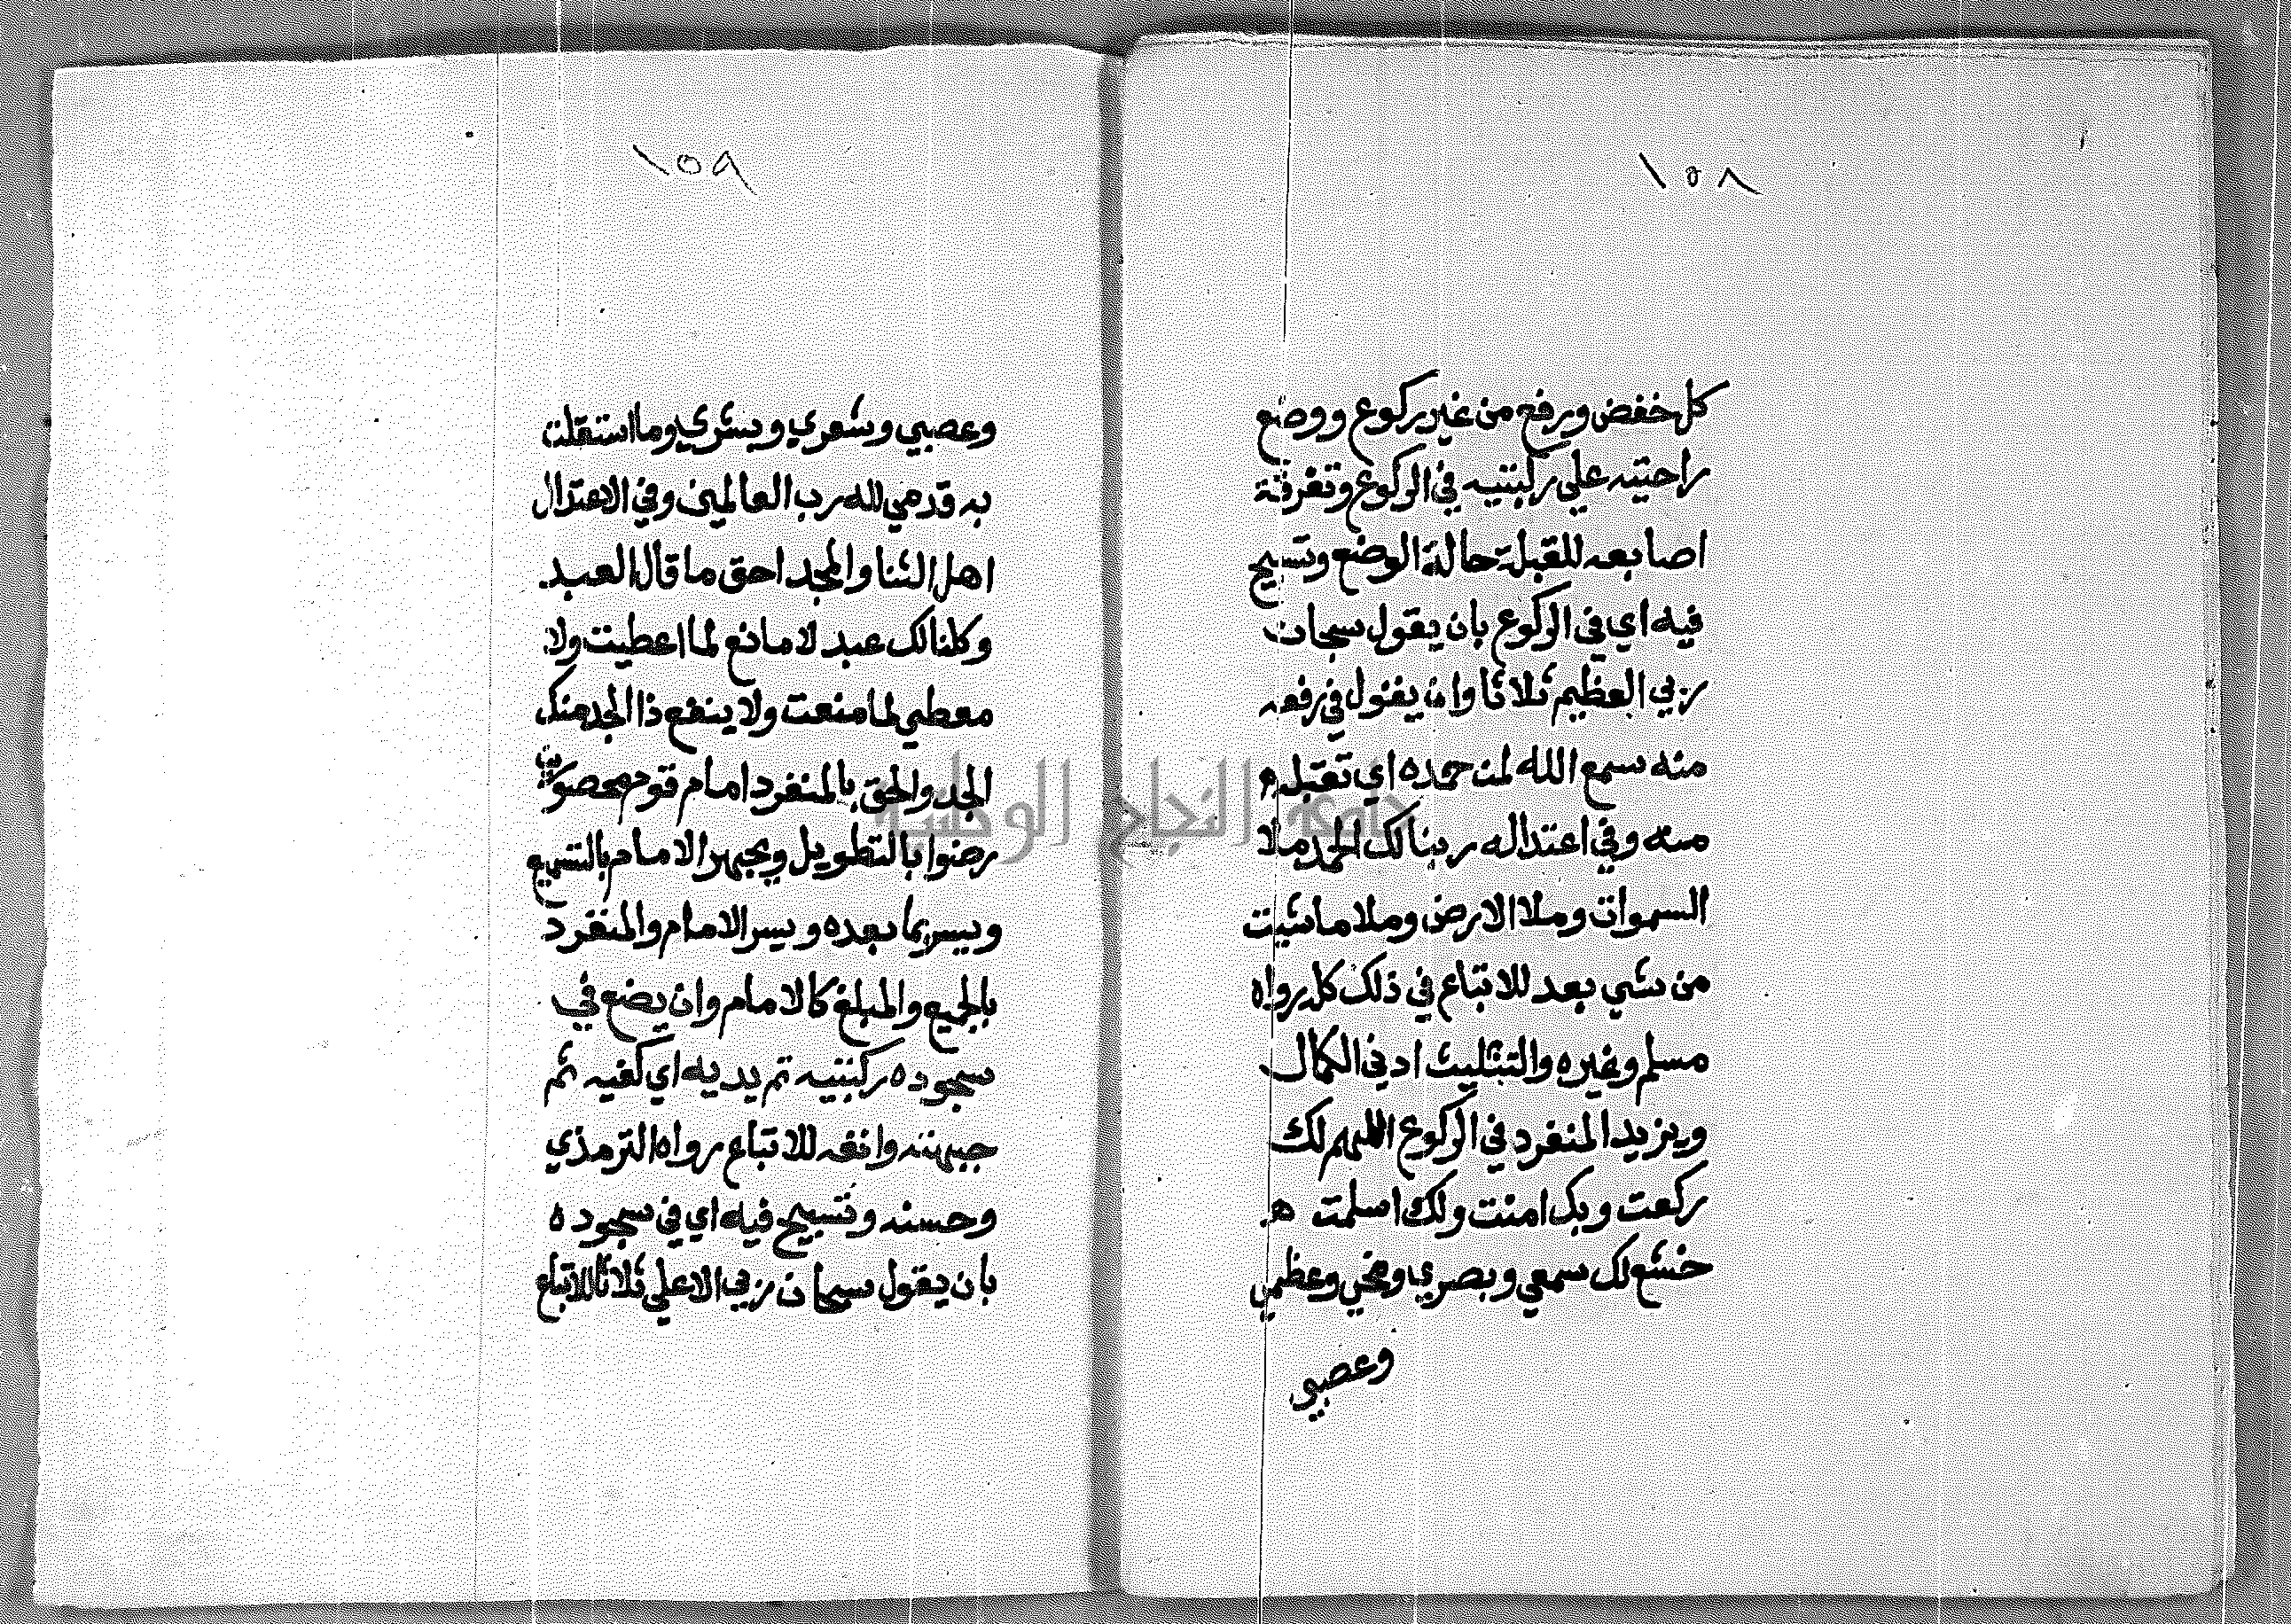 ١٥٨
كل خفض ورفع من غير ركوع ووضع
راحتيه علي ركبتيه في الركوع وتفرقة
اصابعه للقبلة حالة الوضع وتسبيح
فيه اي في الركوع بان يقول سبحان
ربي العظيم ثلاثا وان يقول في رفعه
منه سمع الله لمن حمده اي تقبله
منه وفي اعتداله ربنا لك الحمد ملا
السموات وملا الارض وملا ما شيت
من شي بعد للاتباع في ذلك كله رواه
مسلم وغيره والتثليث ادني الكمال
ويزيد المنفرد في الركوع اللهم لك
ركعت وبك امنت ولك اسلمت
خشع لك سمعي وبصري ومخي وعظمي
وعصبي
١٥٩
وعصبي وشعري وبشري وما استقلت
به قدمي لله رب العالمين وفي الاعتدال
اهل الثنا والمجد احق ما قال العبد
وكلنا لك عبد لا مانع لما اعطيت ولا
معطي لما منعت ولا ينفع ذا الجد منك
الجد والحق بالمنفرد امام قوم محصورين
رضوا بالتطويل ويجهر الامام بالتسميع
ويسر بما بعده ويسر الامام والمنفرد
بالجميع والمبلغ كالامام وان يضع في
سجوده ركبتيه ثم يديه اي كفيه ثم
جبهته وانفه للاتباع رواه الترمذي
وحسنه وتسبيح فيه اي في سجوده
بان يقول سبحان ربي الاعلي ثلاثا للاتباع
جامعة النجاح الوطنية